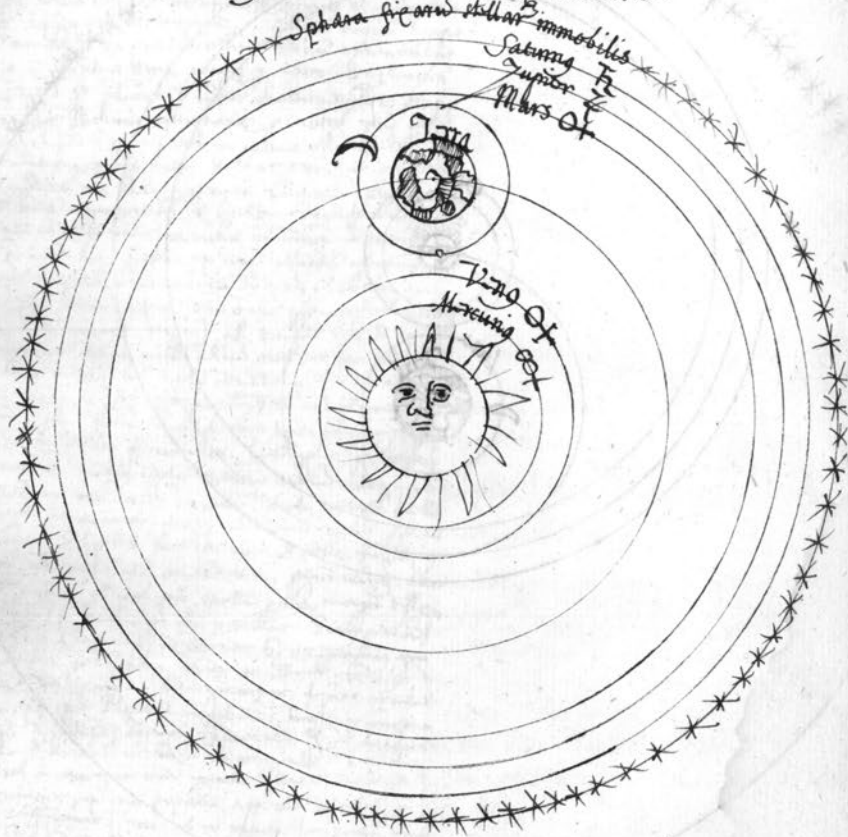 Sphæra fixarū stellarū immobilis
Saturnꝰ ♄
Jupiter ♃
Mars ♂
Terra
Venꝰ ♀
Mercuriꝰ ☿